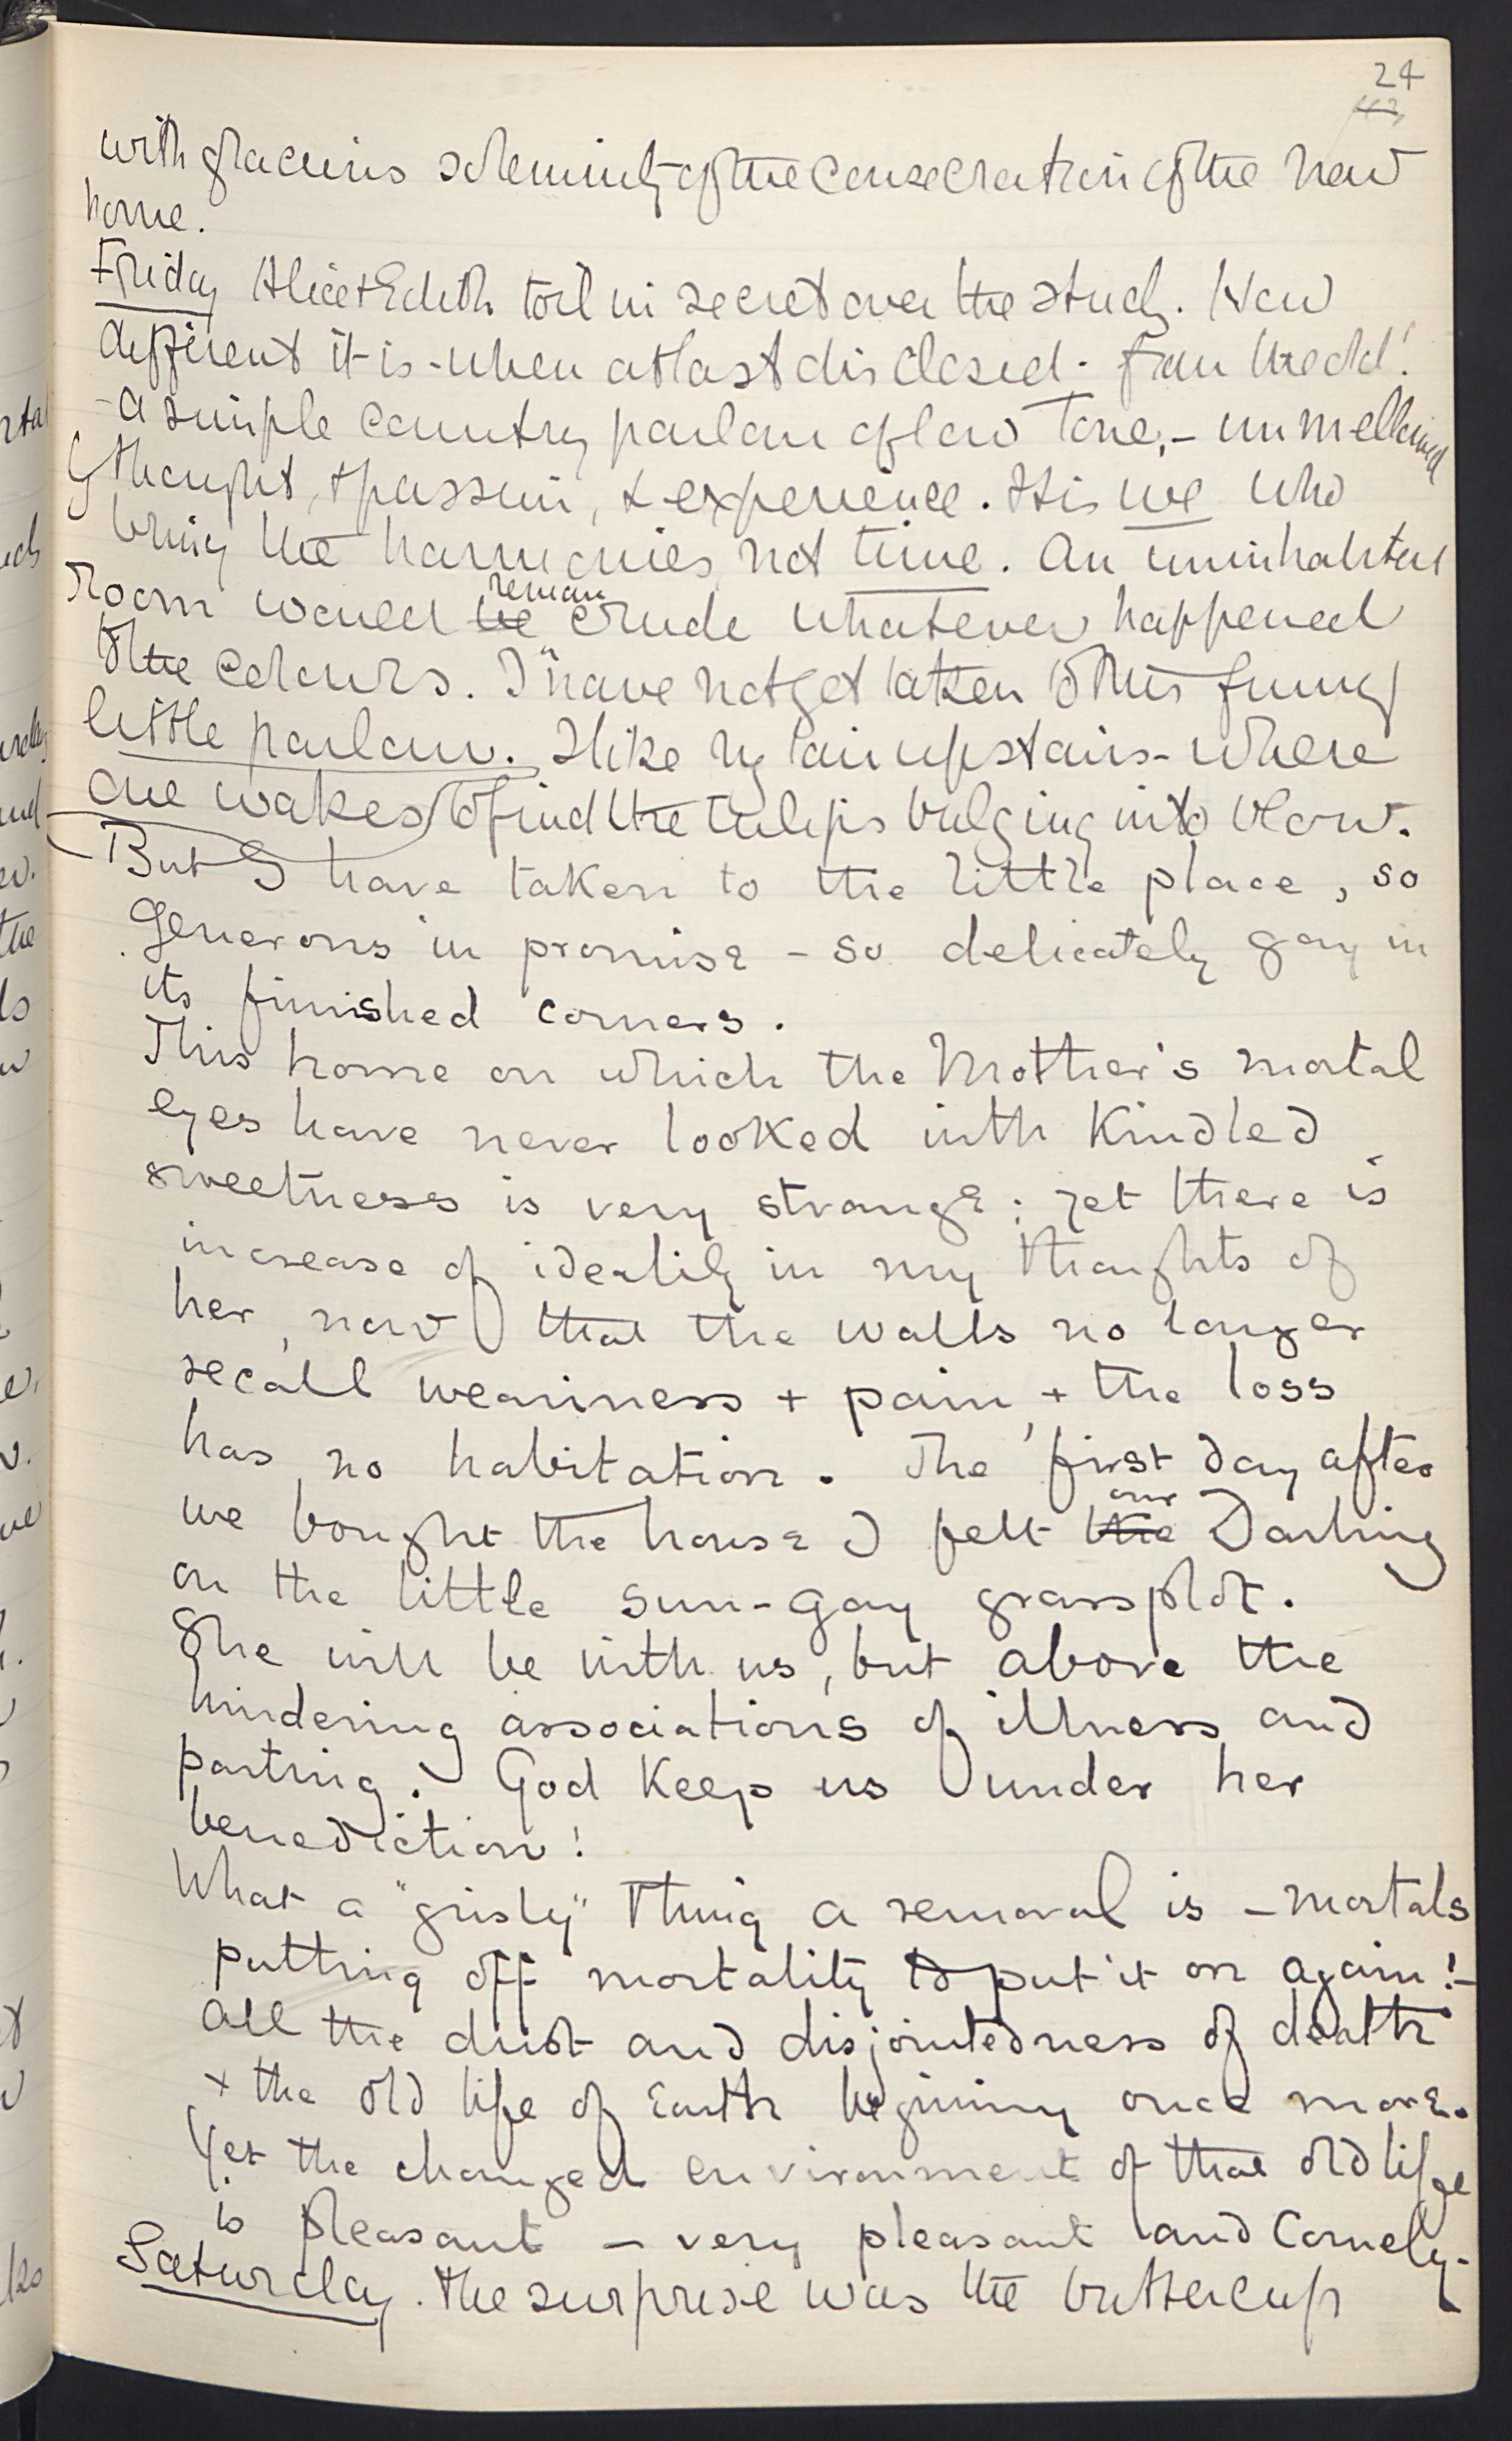 24
with gracious solemnity of the consecration of the new
home.
Friday Alice & Edith toil in secret over the study. How
different it is - when at last disclosed - from the old!
- a simple country parlour of low tone, - unmellowed
by thought, & passion, & experience. It is we who
bring the harmonies, not time. An uninhabited
remain
room would be crude whatever happened
to the colours. I have not yet taken to this funny
little parlour. I like my lair upstairs - where
one wakes to find the tulips bulging into blow.
But I have taken to the little place, so
generous in promise - so delicately gay in
its finished corners.
This home on which the Mother's mortal
eyes have never looked with kindled
sweetness is very strange; yet there is
increase of ideality in my thoughts of
her, now that the walls no longer
recall weariness + pain, + the loss
has no habitation. The first day after
our
we bought the house I felt the Darling
on the little sun-gay grassplot.
She will be with us, but above the
hindering associations of illness and
parting. God keep us under her
benediction!
What a "grisly" thing a removal is - mortals
putting off mortality to put it on again! -
all the dust and disjointedness of death
+ the old life of Earth beginning once more.
Yet the changed environment of that old life
is pleasant - very pleasant and Comely -
Saturday. The surprise was the buttercup